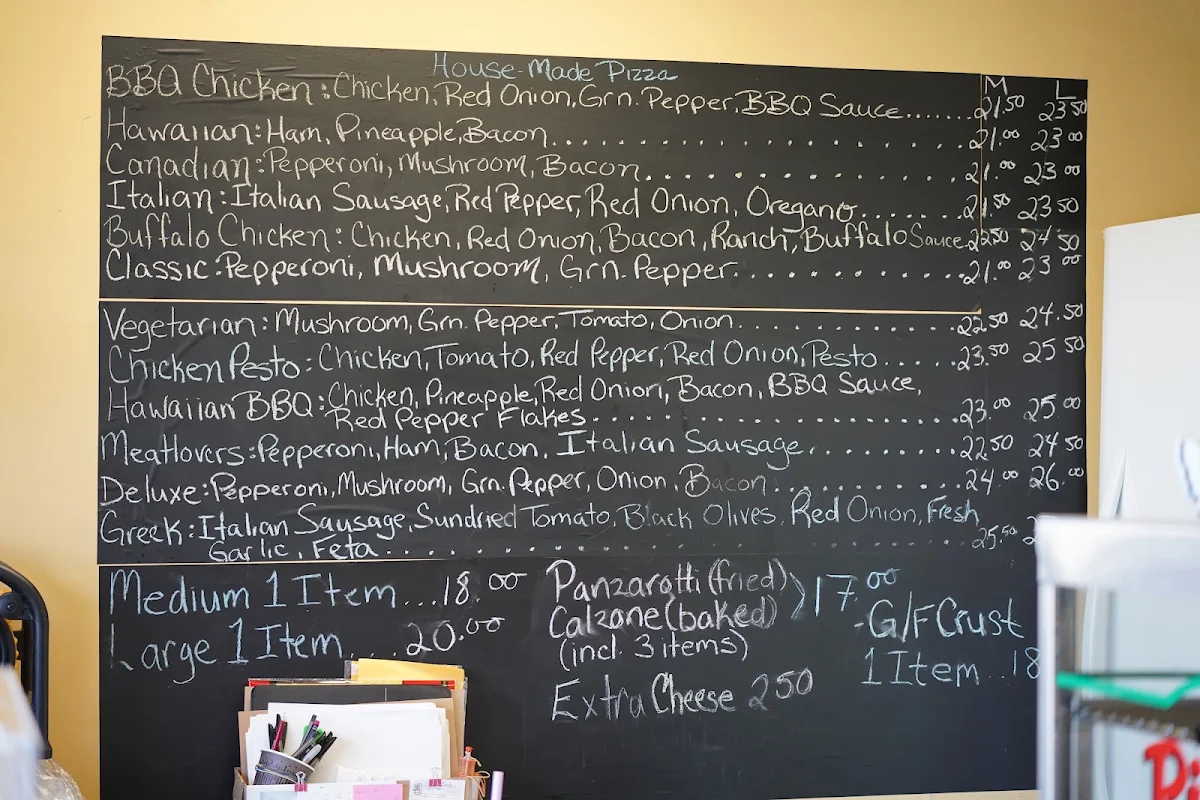 House-Made Pizza
M L
BBQ Chicken: Chicken, Red Onion, Grn. Pepper, BBQ Sauce.......21.50 23.50
Hawaiian: Ham, Pineapple, Bacon...........................21.00 23.00
Canadian: Pepperoni, Mushroom, Bacon....................21.00 23.00
Italian: Italian Sausage, Red Pepper, Red Onion, Oregano.......21.50 23.50
Buffalo Chicken: Chicken, Red Onion, Bacon, Ranch, Buffalo Sauce.22.50 24.50
Classic: Pepperoni, Mushroom, Grn. Pepper..............21.00 23.00
Vegetarian: Mushroom, Grn. Pepper, Tomato, Onion..............22.50 24.50
Chicken Pesto: Chicken, Tomato, Red Pepper, Red Onion, Pesto.....23.50 25.50
Hawaiian BBQ: Chicken, Pineapple, Red Onion, Bacon, BBQ Sauce,
Red Pepper Flakes......................23.00 25.00
Meatlovers: Pepperoni, Ham, Bacon, Italian Sausage...........22.50 24.50
Deluxe: Pepperoni, Mushroom, Grn. Pepper, Onion, Bacon...........24.00 26.00
Greek: Italian Sausage, Sundried Tomato, Black Olives, Red Onion, Fresh
Garlic, Feta.............................25.50
Medium 1 Item...18.00
Large 1 Item...20.00
Panzarotti (fried)
Calzone (baked) 17.00
(incl. 3 items)
Extra Cheese 2.50
-G/F Crust
1 Item ..18